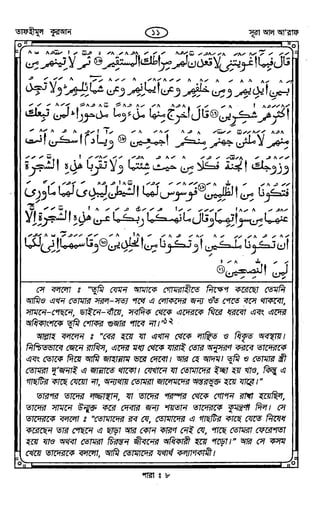 তাফহীমুল কুরআন ১১ সূরা আল আ'রাফ
قَالَ فَبِمَا أَغْوَيْتَنِي لَأَقْعُدَنَّ لَهُمْ صِرَاطَكَ الْمُسْتَقِيمَ ۝ ثُمَّ لَآتِيَنَّهُمْ مِنْ
بَيْنِ أَيْدِيهِمْ وَمِنْ خَلْفِهِمْ وَعَنْ أَيْمَانِهِمْ وَعَنْ شَمَائِلِهِمْ وَلَا تَجِدُ
أَكْثَرَهُمْ شَاكِرِينَ ۝ قَالَ اخْرُجْ مِنْهَا مَذْءُومًا مَدْحُورًا لَمَنْ تَبِعَكَ
مِنْهُمْ لَأَمْلَأَنَّ جَهَنَّمَ مِنْكُمْ أَجْمَعِينَ ۝ وَيَا آدَمُ اسْكُنْ أَنْتَ
وَزَوْجُكَ الْجَنَّةَ فَكُلَا مِنْ حَيْثُ شِئْتُمَا وَلَا تَقْرَبَا هَذِهِ الشَّجَرَةَ
فَتَكُونَا مِنَ الظَّالِمِينَ ۝ فَوَسْوَسَ لَهُمَا الشَّيْطَانُ لِيُبْدِيَ لَهُمَا مَا وُورِيَ
عَنْهُمَا مِنْ سَوْآتِهِمَا وَقَالَ مَا نَهَاكُمَا رَبُّكُمَا عَنْ هَذِهِ الشَّجَرَةِ إِلَّا
أَنْ تَكُونَا مَلَكَيْنِ أَوْ تَكُونَا مِنَ الْخَالِدِينَ ۝ وَقَاسَمَهُمَا إِنِّي لَكُمَا
لَمِنَ النَّاصِحِينَ ۝
সে বললো ঃ “তুমি যেমন আমাকে গোমরাহীতে নিক্ষেপ করেছো তেমনি
আমিও এখন তোমার সরল-সত্য পথে এ লোকদের জন্য ওঁত পেতে বসে থাকবো,
সামনে-পেছনে, ডাইনে-বাঁয়ে, সবদিক থেকে এদেরকে ঘিরে ধরবো এবং এদের
অধিকাংশকে তুমি শোকর গুজার পাবে না।”১২
আল্লাহ বললেন ঃ “বের হয়ে যা এখান থেকে লাঞ্ছিত ও ধিকৃত অবস্থায়।
নিশ্চিতভাবে জেনে রাখিস, এদের মধ্য থেকে যারাই তোর অনুসরণ করবে তাদেরকে
এবং তোকে দিয়ে আমি জাহান্নাম ভরে দেবো। আর হে আদম! তুমি ও তোমার স্ত্রী
তোমরা দু'জনাই এ জান্নাতে থাকো। যেখানে যা তোমাদের ইচ্ছা হয় খাও, কিন্তু এ
গাছটির কাছে যেয়ো না, অন্যথায় তোমরা জালেমদের অন্তরভুক্ত হয়ে যাবে।”
তারপর তাদের লজ্জাস্থান, যা তাদের পরস্পর থেকে গোপন রাখা হয়েছিল,
তাদের সামনে উন্মুক্ত করে দেবার জন্য শয়তান তাদেরকে কুমন্ত্রণা দিল। সে
তাদেরকে বললো ঃ “তোমাদের রব যে, তোমাদের এ গাছটির কাছে যেতে নিষেধ
করেছেন তার পেছনে এ ছাড়া আর কোন কারণ নেই যে, পাছে তোমরা ফেরেশতা
হয়ে যাও অথবা তোমরা চিরন্তন জীবনের অধিকারী হয়ে পড়ো।” আর সে কসম
খেয়ে তাদেরকে বললো, আমি তোমাদের যথার্থ কল্যাণকামী।
পারা ঃ ৮